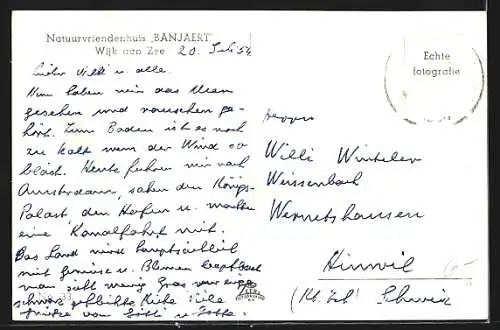 Natuurvriendenhuis „BANJAERT"
Wijk aan Zee 20. Juli 54
Echte
fotografie
Lieber Willi u. alle.
Nun haben wir das Meer
gesehen und rauschen ge-
hört. Zum Baden ist es noch
zu kalt wenn der Wind so
bläst. Heute fuhren wir nach
Amsterdam, sahen den Königs-
Palast, den Hafen u. machten
eine Kanalfahrt mit.
Das Land wird hauptsächlich
mit Gemüse u. Blumen bepflanzt
man sieht wenig Gras nur einige
schwarz gefleckte Kühe. Viele
Grüsse von
Herrn
Willi Winteler
Weissenbach
Wernetshausen
Hinwil
(Kt. Zch) Schweiz